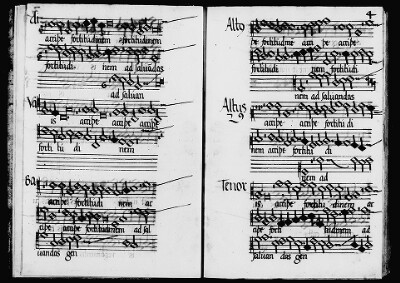 accipe fortitudinem fortitudinem
fortitudi nem ad saluandas
ad saluan
is accipe accipe accipe
forti tu di nem
Ba
accipe fortitudi nem ac
cipe accipe fortitudinem ad sal
uandas gen
4
Alto
pe fortitudinē acci pe accipe
fortitudi nem fortitudi
nem ad saluandas
Altus
2 9
accipe accipe fortitudi
nem accipe fortitudi
nem ad
Tenor
is, accipe fortitudinem ac
cipe forti tudinem ad
saluan das gen